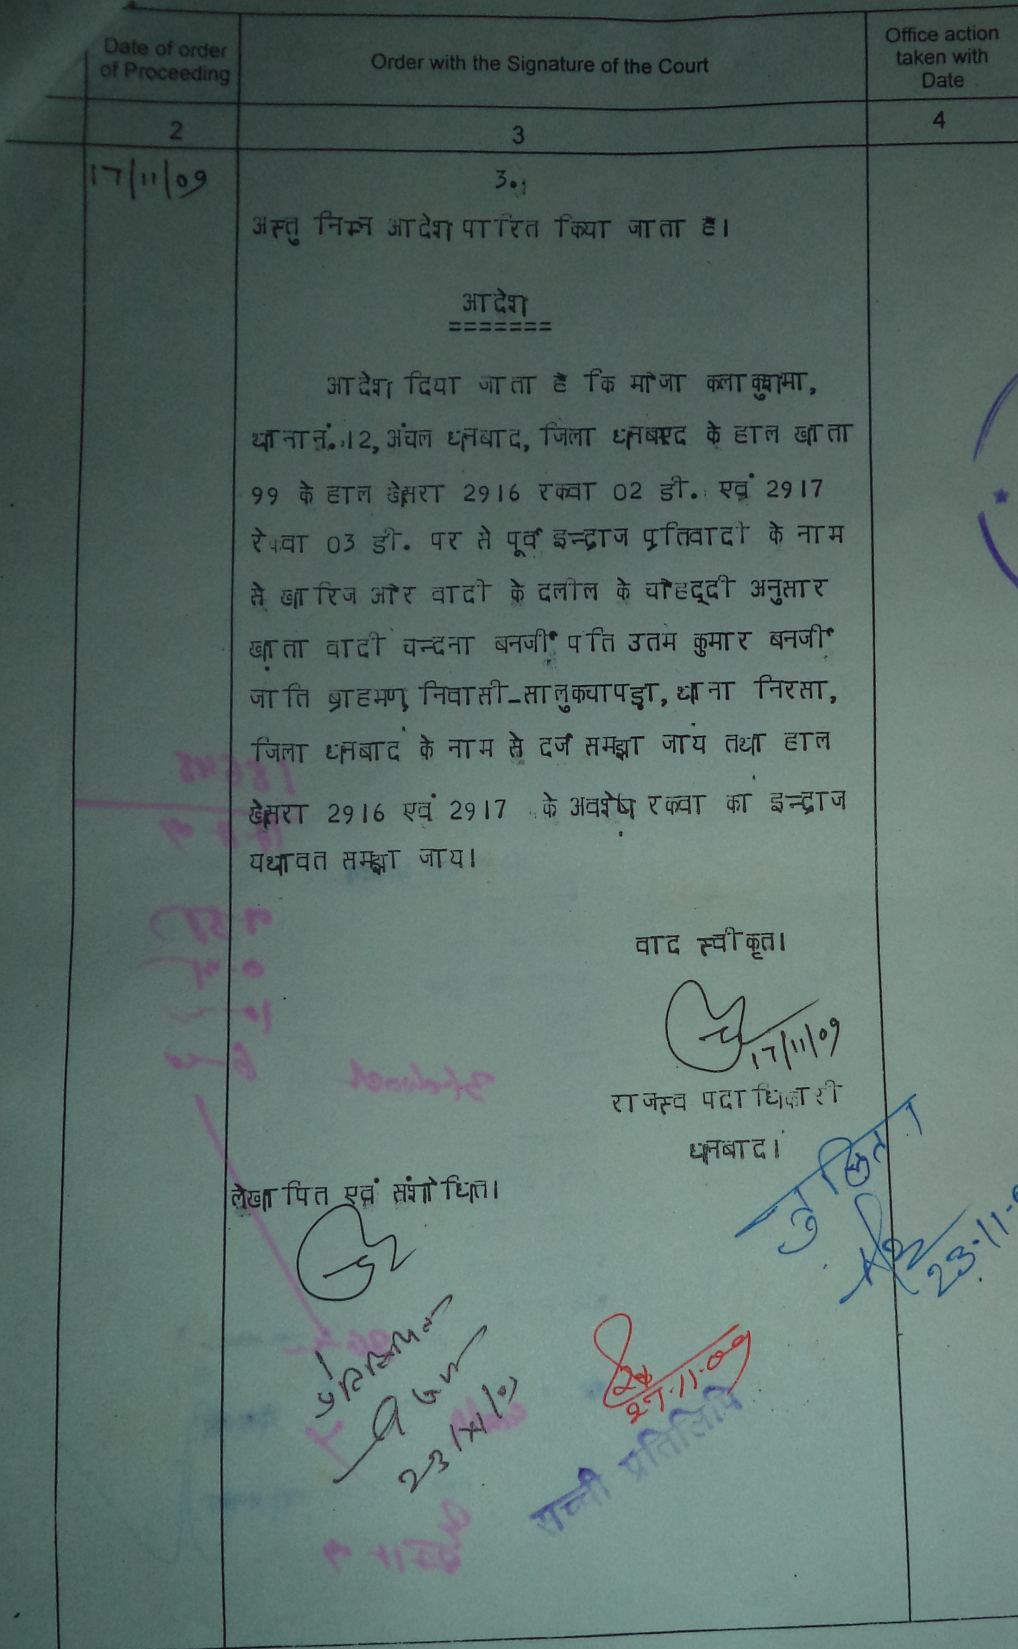 Date of order of Proceeding
Order with the Signature of the Court
Office action taken with Date
2
3
4
17/11/09
3.
अस्तु निम्न आदेश पारित किया जाता है।
आदेश
=======
आदेश दिया जाता है कि मौजा कला कुसमा,
थाना नं. 12, अंचल धनबाद, जिला धनबाद के हाल खाता
99 के हाल खेसरा 2916 रकवा 02 डी. एवं 2917
रकवा 03 डी. पर से पूर्व इन्द्राज प्रतिवादी के नाम
से खारिज और वादी के दलील के चौहद्दी अनुसार
खाता वादी चन्दना बनर्जी पति उतम कुमार बनर्जी
जाति ब्राहमण, निवासी-सालुकचापड़ा, थाना निरसा,
जिला धनबाद के नाम से दर्ज समझा जाय तथा हाल
खेसरा 2916 एवं 2917 के अवशेष रकवा का इन्द्राज
यथावत समझा जाय।
वाद स्वीकृत।
17/11/09
राजस्व पदाधिकारी
धनबाद।
लेखापित एवं संशोधित।
23-11-
27-11-09
सच्ची प्रतिलिपि